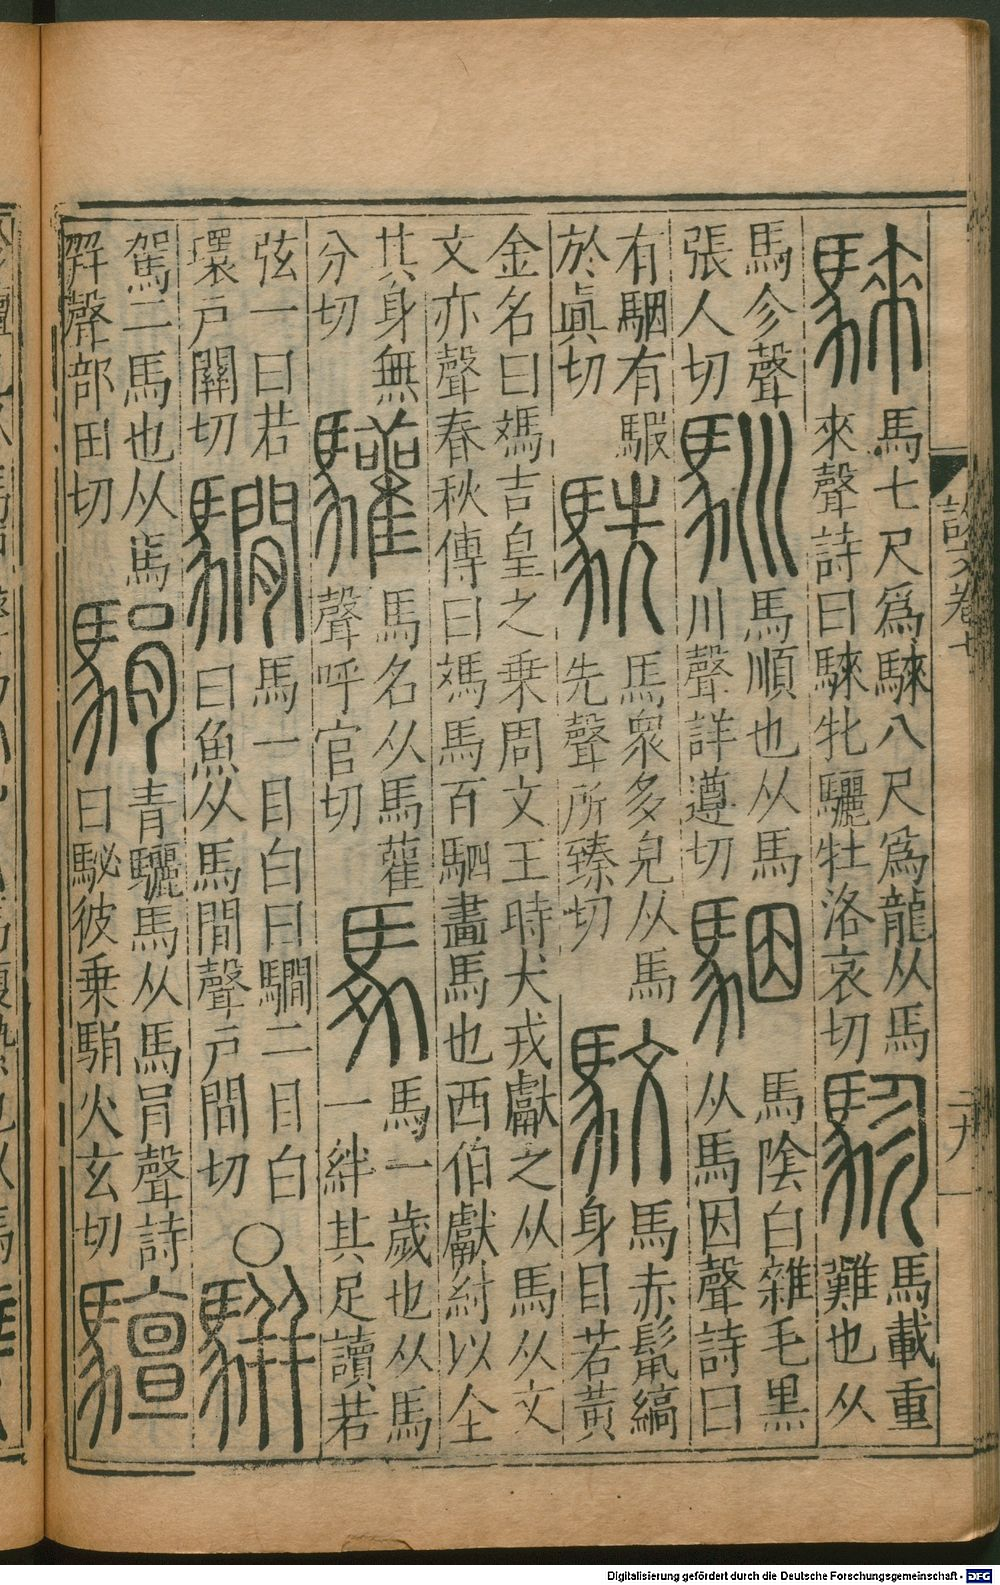 說文卷七 二九
騋
馬七尺爲騋八尺爲龍从馬
來聲詩曰騋牝驪牡洛哀切
駗
馬載重
難也从
馬㐱聲
張人切
馴
馬順也从馬
川聲詳遵切
駰
馬陰白雜毛黑
从馬因聲詩曰
有駰有騢
於眞切
駪
馬眾多皃从馬
先聲所臻切
馼
馬赤鬣縞
身目若黃
金名曰媽吉皇之乗周文王時犬戎獻之从馬从文
文亦聲春秋傳曰媽馬百駟畫馬也西伯獻紂以全
其身無
分切
驩
馬名从馬雚
聲呼官切
𩡧
馬一歲也从馬
一絆其足讀若
弦一曰若
環戶關切
𩦂
馬一目白曰𩦂二目白
曰魚从馬間聲戶間切
○
騈
駕二馬也从馬
幷聲部田切
駽
青驪馬从馬肙聲詩
曰駜彼乗駽火玄切
驙
Digitalisierung gefördert durch die Deutsche Forschungsgemeinschaft - DFG